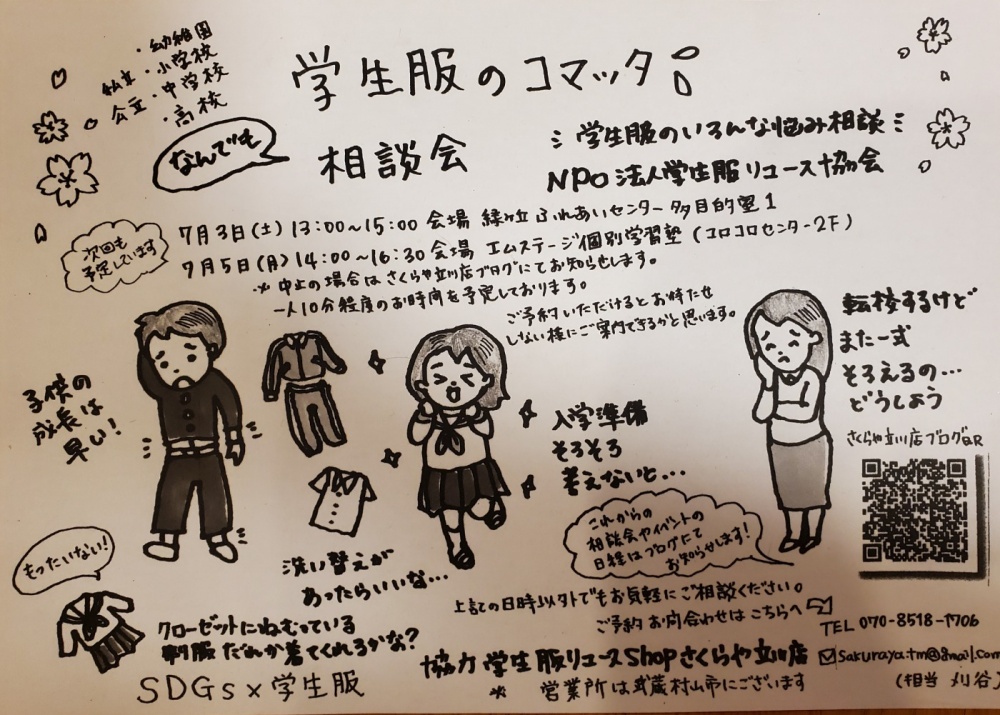 ・幼稚園
私立・小学校
公立・中学校
・高校
学生服のコマッタ!
なんでも
相談会
学生服のいろんな悩み相談
NPO法人学生服リユース協会
次回も
予定しています
7月3日(土) 13:00~15:00 会場 緑が丘ふれあいセンター 多目的室1
7月5日(月) 14:00~16:30 会場 エムステージ個別学習塾(コロコロセンター2F)
※中止の場合はさくらや立川店ブログにてお知らせします。
一人10分程度のお時間を予定しております。
ご予約いただけるとお待たせ
しない様にご案内できるかと思います。
子供の
成長は
早い!
入学準備
そろそろ
考えないと…
転校するけど
また一式
そろえるの…
どうしよう
さくらや立川店ブログQR
洗い替えが
あったらいいな…
これからの
相談会やイベントの
日程はブログにて
お知らせします!
もったいない!
クローゼットにねむっている
制服だれか着てくれるかな?
SDGs×学生服
上記の日時以外でもお気軽にご相談ください。
ご予約お問合わせはこちらへ
TEL 070-8518-1706
協力 学生服リユースShopさくらや立川店
sakuraya.tm@gmail.com
※ 営業所は武蔵村山市にございます
(担当 刈谷)